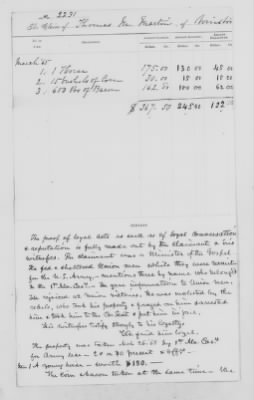 No 2231
The Claim of Thomas M. Martin of
March '65
1. 1 Horse 175.00 130.00 45.00
2. 15 bushels of Corn 30.00 15.00 15.00
3. 650 lbs of Bacon 162.50 100.00 62.50
$ 367.50 245.00 122.50
REMARKS
The proof of loyal acts as well as of loyal conversation
& reputation is fully made out by the claimant & his
witnesses. The claimant was a Minister of the Gospel
He fed & sheltered Union men while they were
the U.S. Army – mentions three by name who belonged
to the 1st Ala. Cav. He gave information to Union men.
He rejoiced at Union victories. He was molested by the
rebels, who took his property & arrested
him & took him to the & put him in jail.
His witnesses testify strongly to his loyalty.
We find him loyal.
The property was taken by 1st Ala Cav
for Army use – present & Offr.
Item 1 A young horse – worth $130. –
The corn & bacon taken at the same time – We